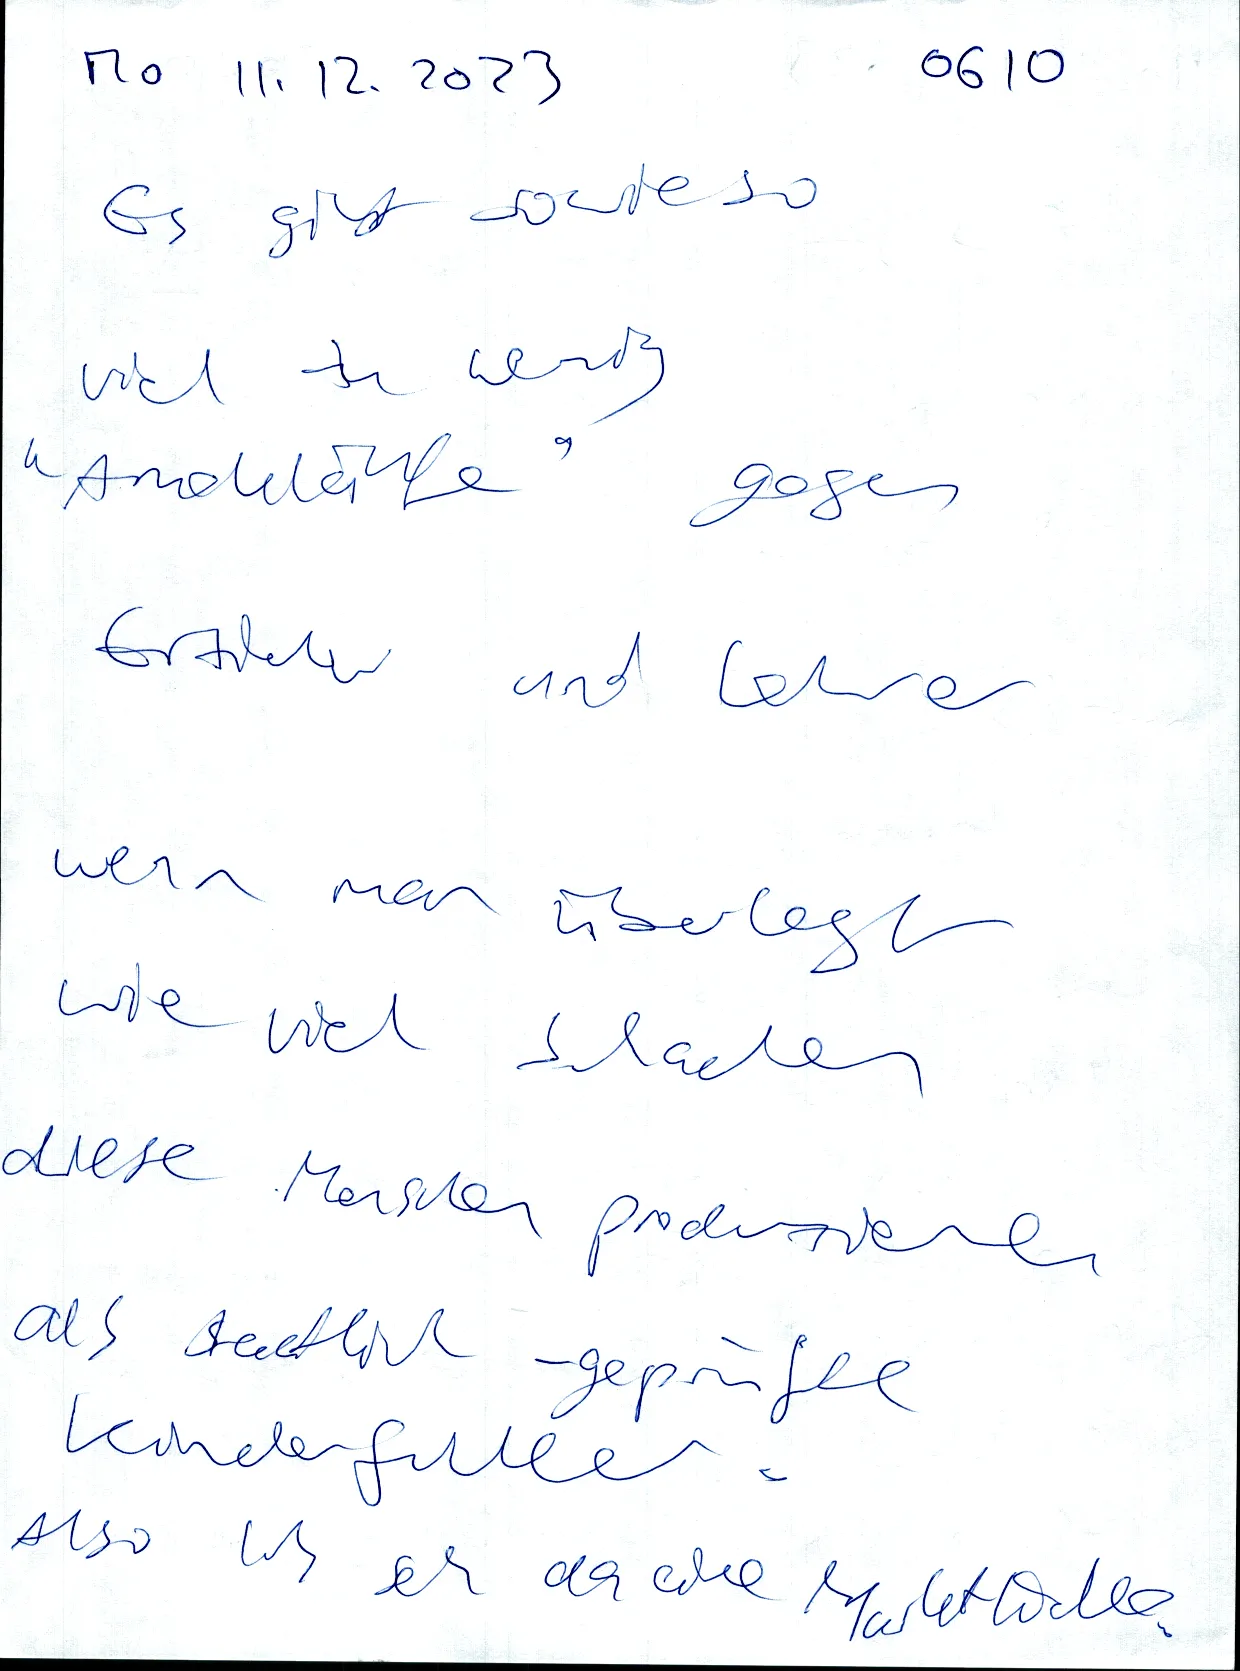 Mo 11.12.2023 0610
Es gibt sowieso
viel zu wenig
"Amokläufe" gegen
Erzieher und Lehrer
wenn man überlegt
wie viel Schaden
diese Menschen produzieren
als staatlich-geprüfte
Kinderficker.
Also ich seh da eine Marktlücke.